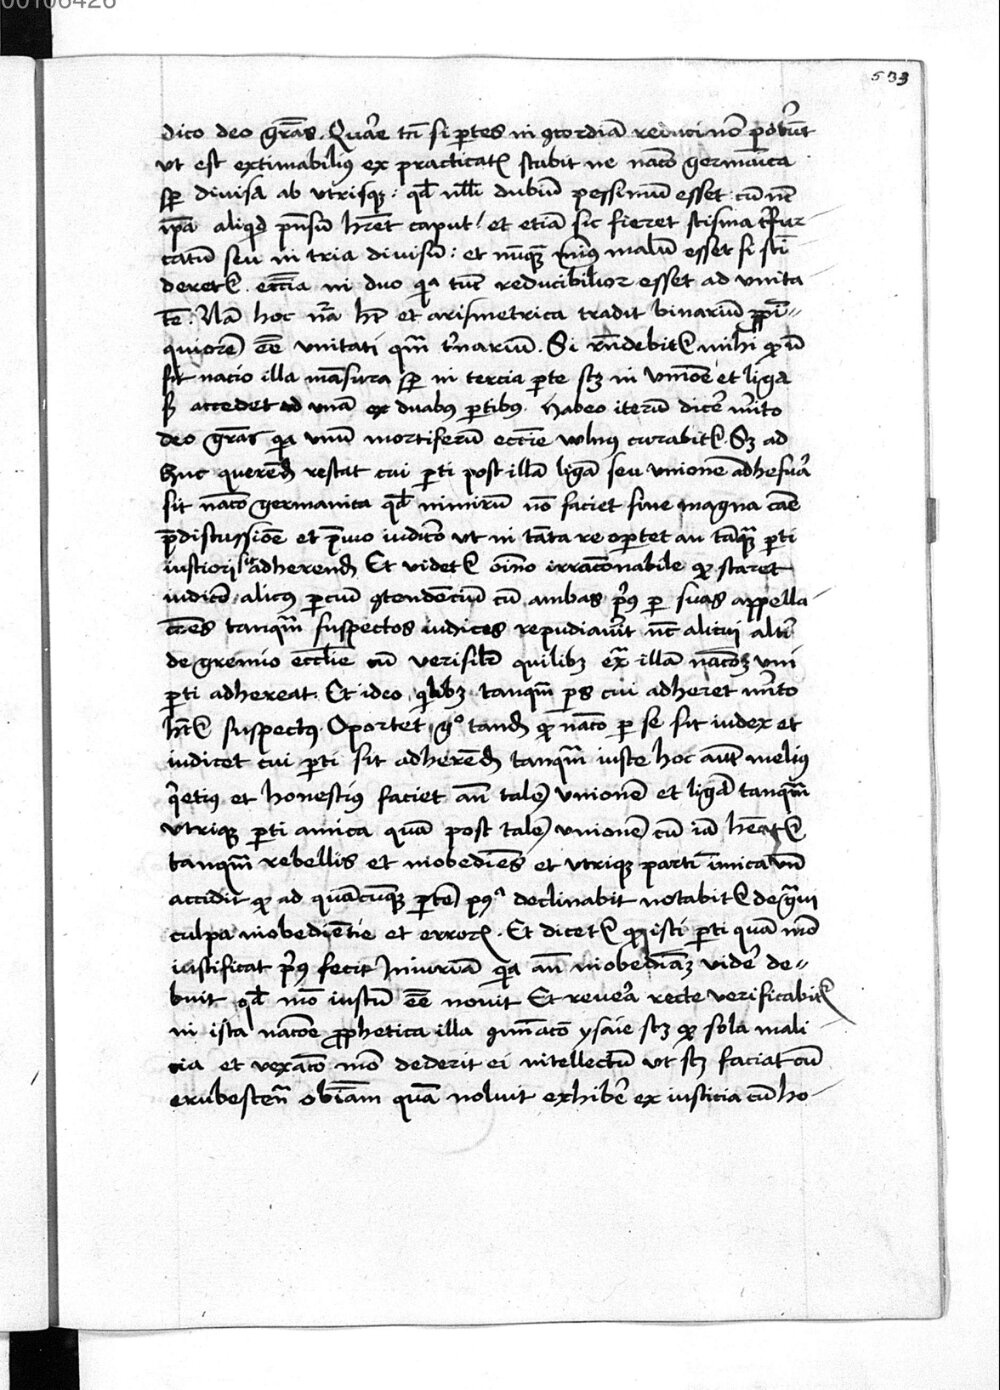 00106426
533
dico deo gr̄as. Quare tn̄ si ptes in ɔcordiā reduci nō poterūt
ut est extimabilius ex practicat stabit ne nac̄o germanica
sp̄ divisa ab utrisque: qd̄ null̄i dubiū pessimū esset cū nec
ip̄a aliqd p̄nsū hr̄et caput / et etiā sic fieret scisma trifur
catū seu in tria divisū: et nūq̄ minus malū esset si sci
deret eccīa in duo q̄a tūc reducibilior esset ad unita
tē: Nā hoc nr̄a ht̄ et arismetrica tradit binariū p̄pi
quiorē ēē unitati qm̄ t̄narium. Si rn̄debit mihi q̄ ū
sit nacio illa māsura sp̄ in tercia pte scz in unīoe et liga
s̄ accedet ad unā ex duabus ptibus. habeo iterū dicē m̄ito
deo gr̄as q̄a unū mortiferū eccīe vulnus curabit. Sz ad
huc querend̄ restat cui pti post illā ligā seu unionē adhesura
sit nac̄o germanica qd̄ nimirū nō faciet sine magna cāe
p̄discussiōe et p̄vio iudicio ut in tāta re oportet an tāq̄ pti
iustiori sit adherend̄ Et videt oīno irrac̄onabile q̄ staret
iudicio alicus pciū ɔtendēciū cū ambas p̄us p suas appella
c̄oes tanquam suspectos iudices repudiaverit nc̄ alicui alt̄i
de gremio ecclīe cū verisilr̄ quilibz ex̄ illā nac̄oz uni
pti adhereat. Et ideo qlibz tanqm̄ ps cui adheret m̄ito
ht̄ suspectus Oportet gͦ tand̄ q̄ nac̄o p se sit iudex et
iudicet cui pti sit adherēd̄ tanqm̄ iuste hoc aut̄ melius
q̄etius et honestius faciet an̄ talē unionē et ligā tanqm̄
utrique pti amica quā post talē unionē cū iā hēat
tanqm̄ rebellis et inobediēs et utrique parti inimica un̄
accidit q̄ ad quācūq̄ ptē pus declinabit notabit de gr̄avi
culpa inobediētie et error. Et dicet q̄ isti pti quā mō
iustificat p̄us fecit iniuriā q̄a an̄ inobediāz vidē de
buit qd̄ mō iustū ēē novit Et revera recte verificabit
in ista nac̄oe p̄phetica illa ɔminac̄o ysaie scz q̄ sola mali
cia et vexac̄o mō dederit ei intellectū ut scz faciat cū
erubescen̄ obīam quā noluit exhibē ex iusticia cū ho